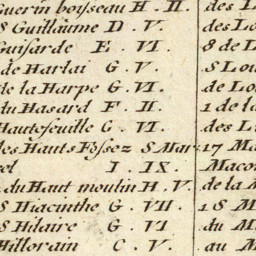 Guerin boisseau H. II. des L
S Guillaume D. V. des Lo
Guisarde E. VI. 8 de L
de Harlai G. V. S Lou
de la Harpe G. VI. de Lo
du Hasard F. II. 1 de la
Hautefeuille G. VI. des L
des Hauts Fossez S Mar. 17 Ma
el I. IX. Macon
du Haut moulin H. V. de la M
S Hiacinthe G. VII. 18 M
S Hilaire G. VI du M
Hillorain C. V. au M